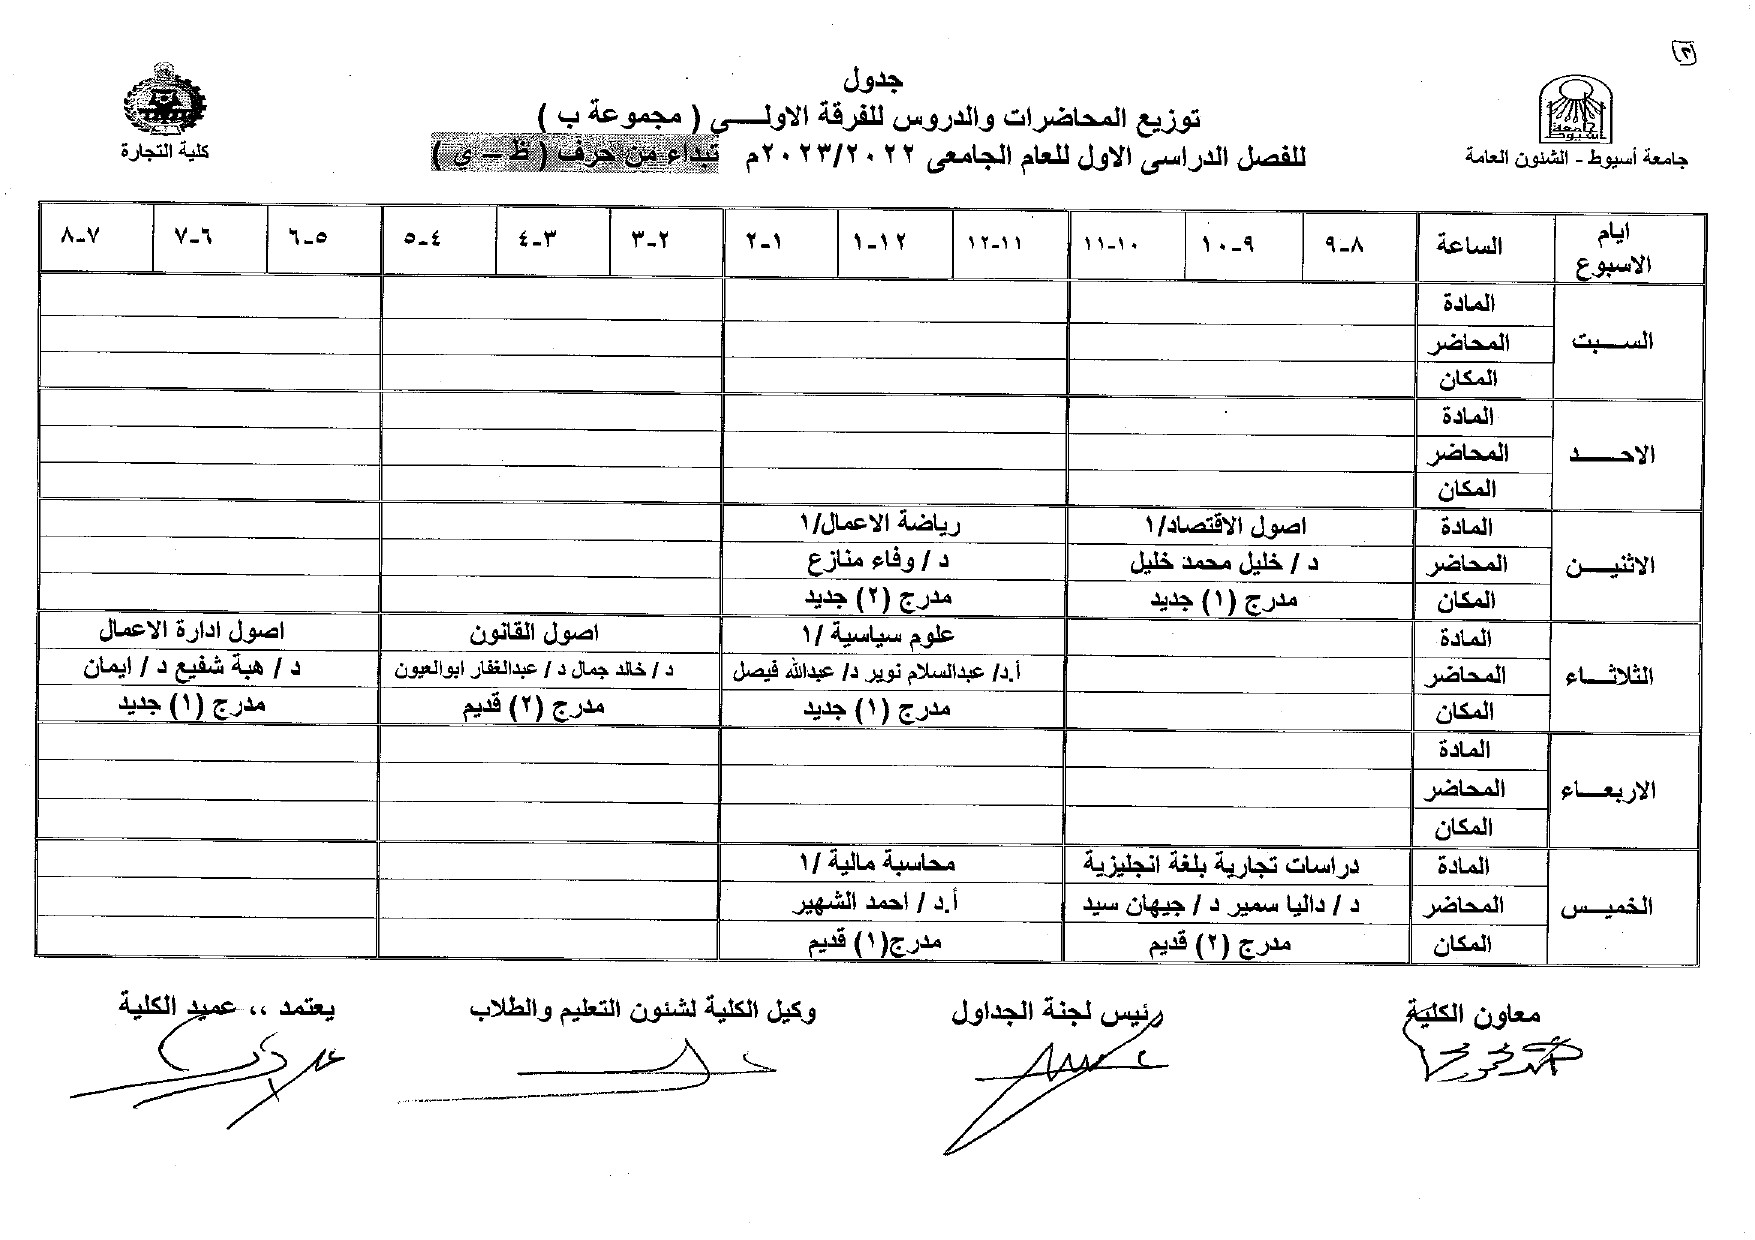 (٢)
جدول
توزيع المحاضرات والدروس للفرقة الاولـــى ( مجموعة ب )
للفصل الدراسى الاول للعام الجامعى ٢٠٢٣/٢٠٢٢م تبداء من حرف ( ظ – ى )
جامعة أسيوط - الشئون العامة
كلية التجارة
ايام الاسبوع الساعة ٨-٩ ٩-١٠ ١٠-١١ ١١-١٢ ١٢-١ ١-٢ ٢-٣ ٣-٤ ٤-٥ ٥-٦ ٦-٧ ٧-٨
السـبت
المادة
المحاضر
المكان
الاحـــد
المادة
المحاضر
المكان
الاثنيـــن
المادة اصول الاقتصاد/١ رياضة الاعمال/١
المحاضر د / خليل محمد خليل د / وفاء منازع
المكان مدرج (١) جديد مدرج (٢) جديد
الثلاثـاء
المادة علوم سياسية /١ اصول القانون اصول ادارة الاعمال
المحاضر أ.د/ عبدالسلام نوير د/ عبدالله فيصل د / خالد جمال د / عبدالغفار ابوالعيون د / هبة شفيع د / ايمان
المكان مدرج (١) جديد مدرج (٢) قديم مدرج (١) جديد
الاربعـــاء
المادة
المحاضر
المكان
الخميـــس
المادة دراسات تجارية بلغة انجليزية محاسبة مالية /١
المحاضر د / داليا سمير د / جيهان سيد أ.د / احمد الشهير
المكان مدرج (٢) قديم مدرج(١) قديم
معاون الكلية رئيس لجنة الجداول وكيل الكلية لشئون التعليم والطلاب يعتمد ،، عميد الكلية